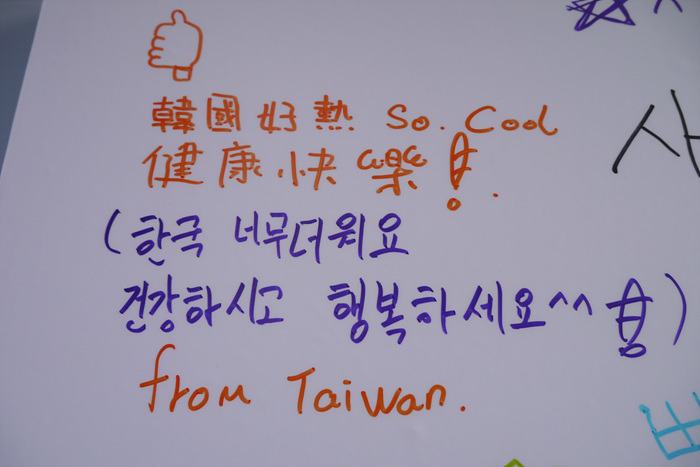 韓國好熱 So. Cool
健康快樂!.
(한국 너무더워요
건강하시고 행복하세요^^)
from Taiwan.
사